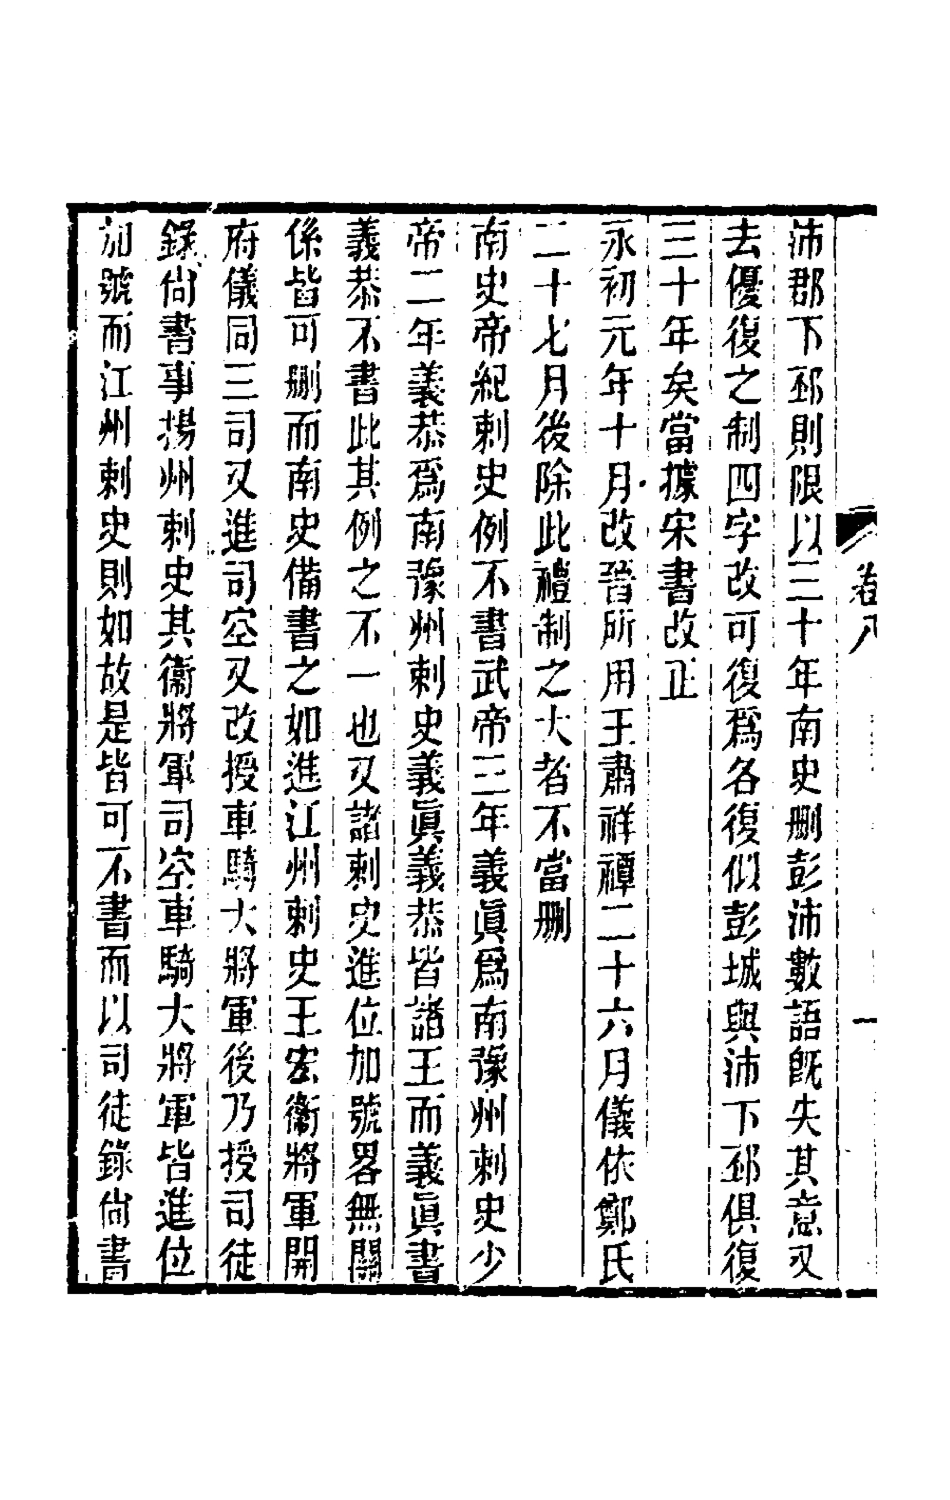 卷八
一
沛郡下邳則限以三十年南史刪彭沛數語旣失其意又
去優復之制四字改可復爲各復似彭城與沛下邳俱復
三十年矣當據宋書改正
永初元年十月改晉所用王肅祥禫二十六月儀依鄭氏
二十七月後除此禮制之大者不當刪
南史帝紀刺史例不書武帝三年義眞爲南豫州刺史少
帝二年義恭爲南豫州刺史義眞義恭皆諸王而義眞書
義恭不書此其例之不一也又諸刺史進位加號畧無關
係皆可刪而南史備書之如進江州刺史王宏衞將軍開
府儀同三司又進司空又改授車騎大將軍後乃授司徒
錄尙書事揚州刺史其衞將軍司空車騎大將軍皆進位
加號而江州刺史則如故是皆可不書而以司徒錄尙書